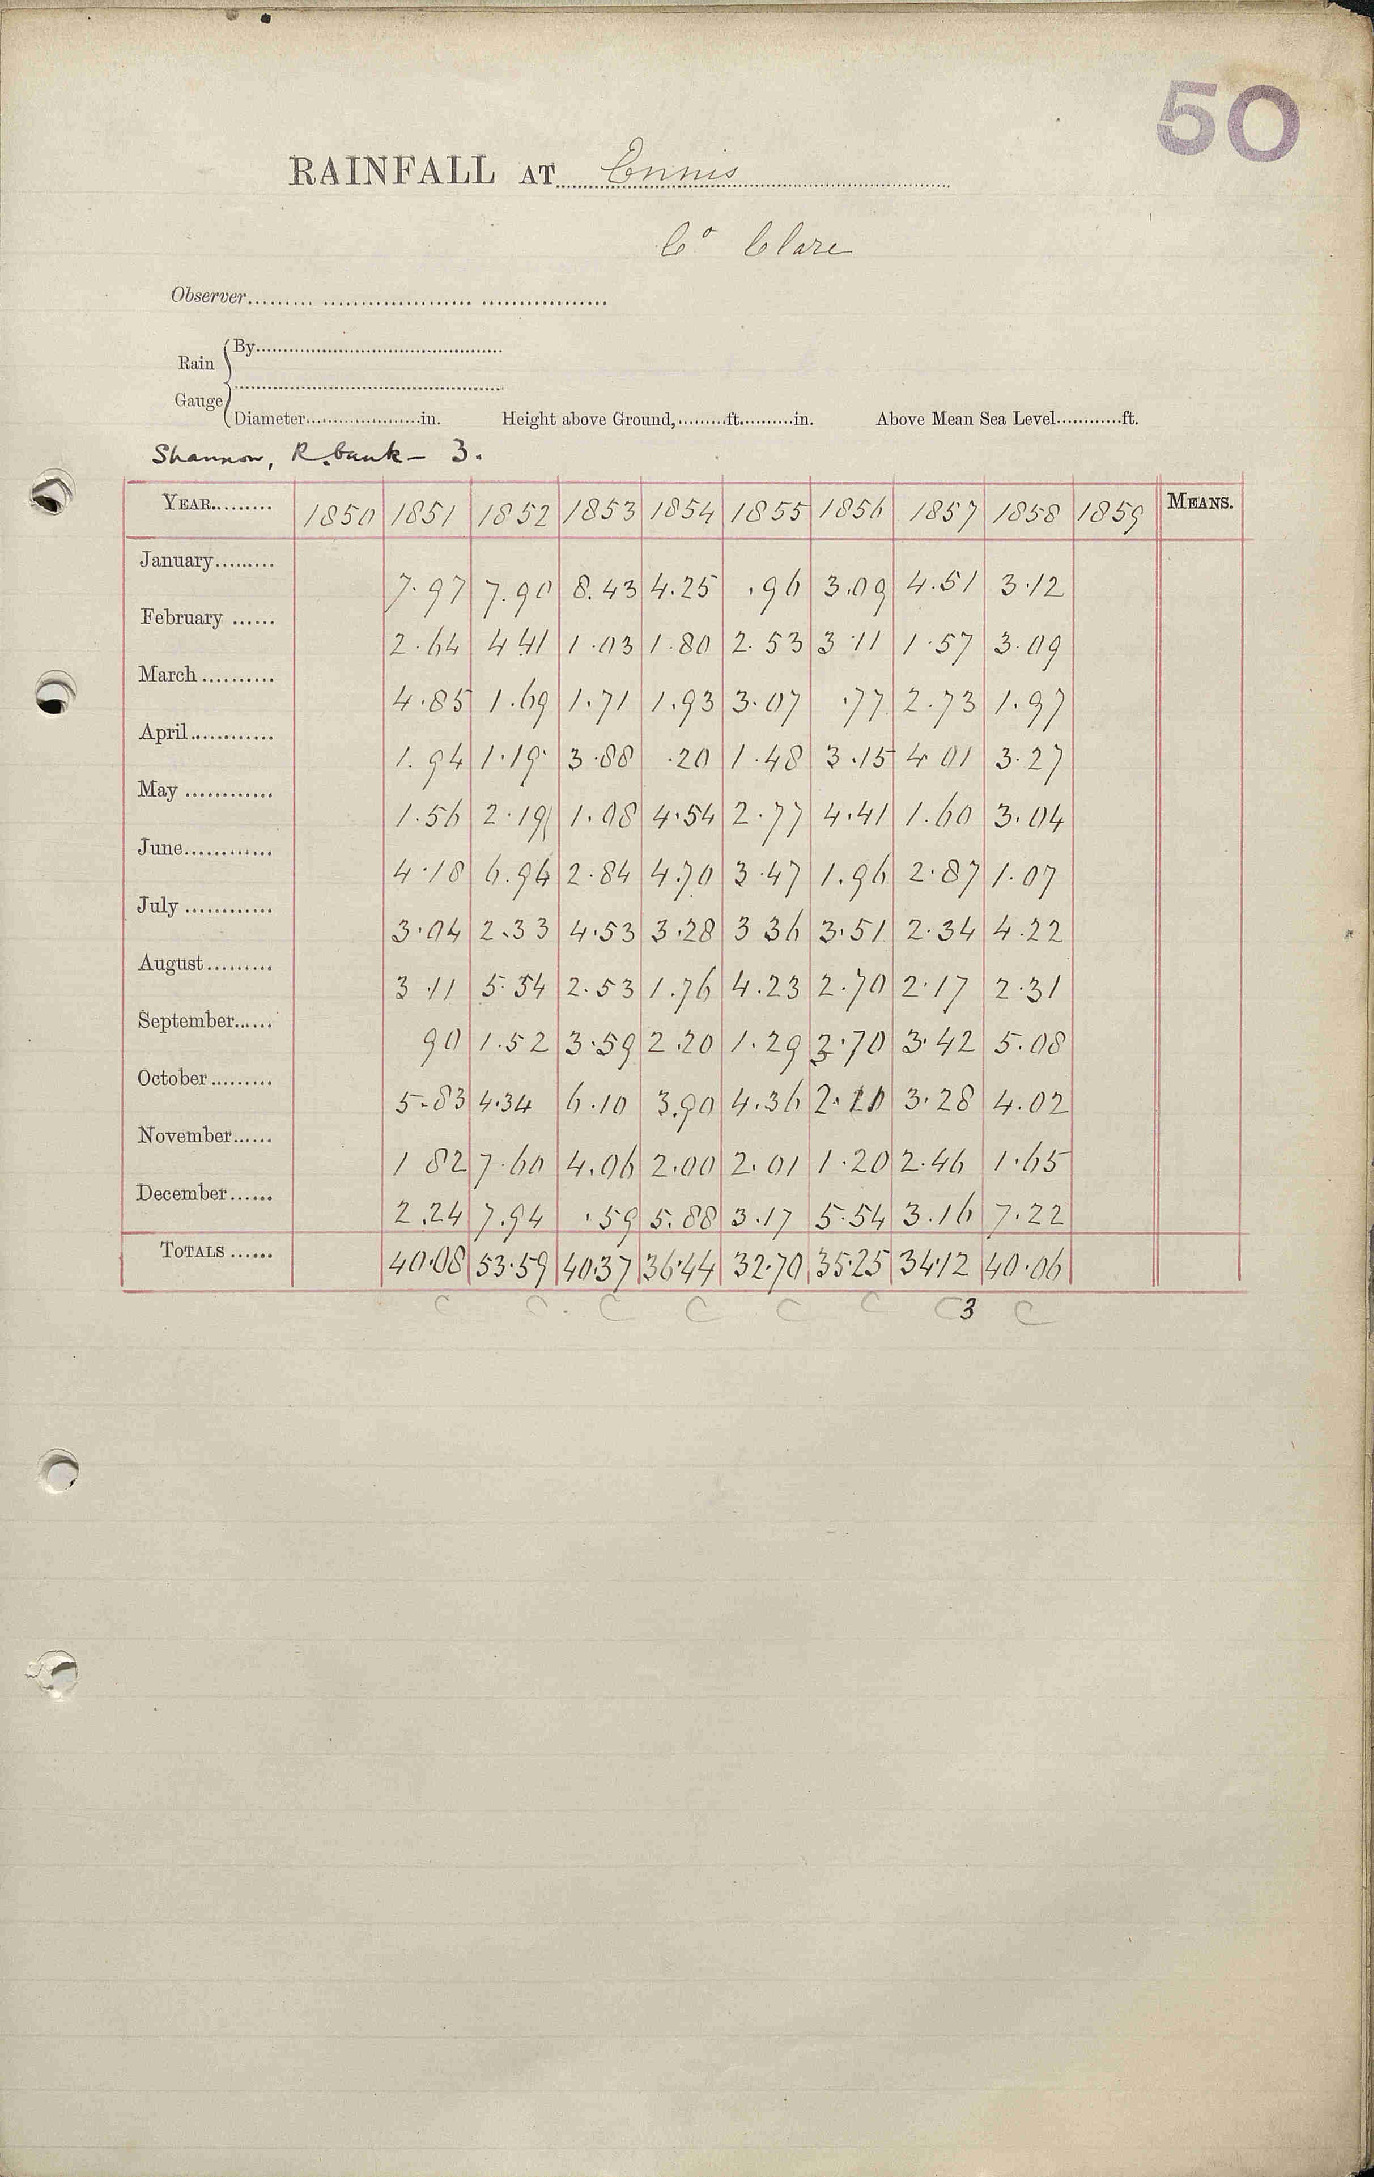 50
RAINFALL AT Ennis
Co Clare
Observer
Rain Gauge { By
Diameter in. Height above Ground, ft. in. Above Mean Sea Level ft.
Shannon, R. bank – 3.
YEAR 1850 1851 1852 1853 1854 1855 1856 1857 1858 1859 MEANS.
January 7.97 7.90 8.43 4.25 .96 3.09 4.51 3.12
February 2.64 4.41 1.03 1.80 2.53 3.11 1.57 3.09
March 4.85 1.69 1.71 1.93 3.07 .77 2.73 1.97
April 1.94 1.19 3.88 .20 1.48 3.15 4 01 3.27
May 1.56 2.19 1.08 4.54 2.77 4.41 1.60 3.04
June 4.18 6.94 2.84 4.70 3.47 1.96 2.87 1.07
July 3.04 2.33 4.53 3.28 3 36 3.51 2.34 4.22
August 3.11 5.54 2.53 1.76 4.23 2.70 2.17 2.31
September 90 1.52 3.59 2.20 1.29 3.70 3.42 5.08
October 5.83 4.34 6.10 3.90 4.36 2.11 3.28 4.02
November 1 82 7.60 4.06 2.00 2.01 1.20 2.46 1.65
December 2.24 7.94 .59 5.88 3.17 5.54 3.16 7.22
TOTALS 40.08 53.59 40.37 36.44 32.70 35.25 34.12 40.06
C C C C C C C3 C